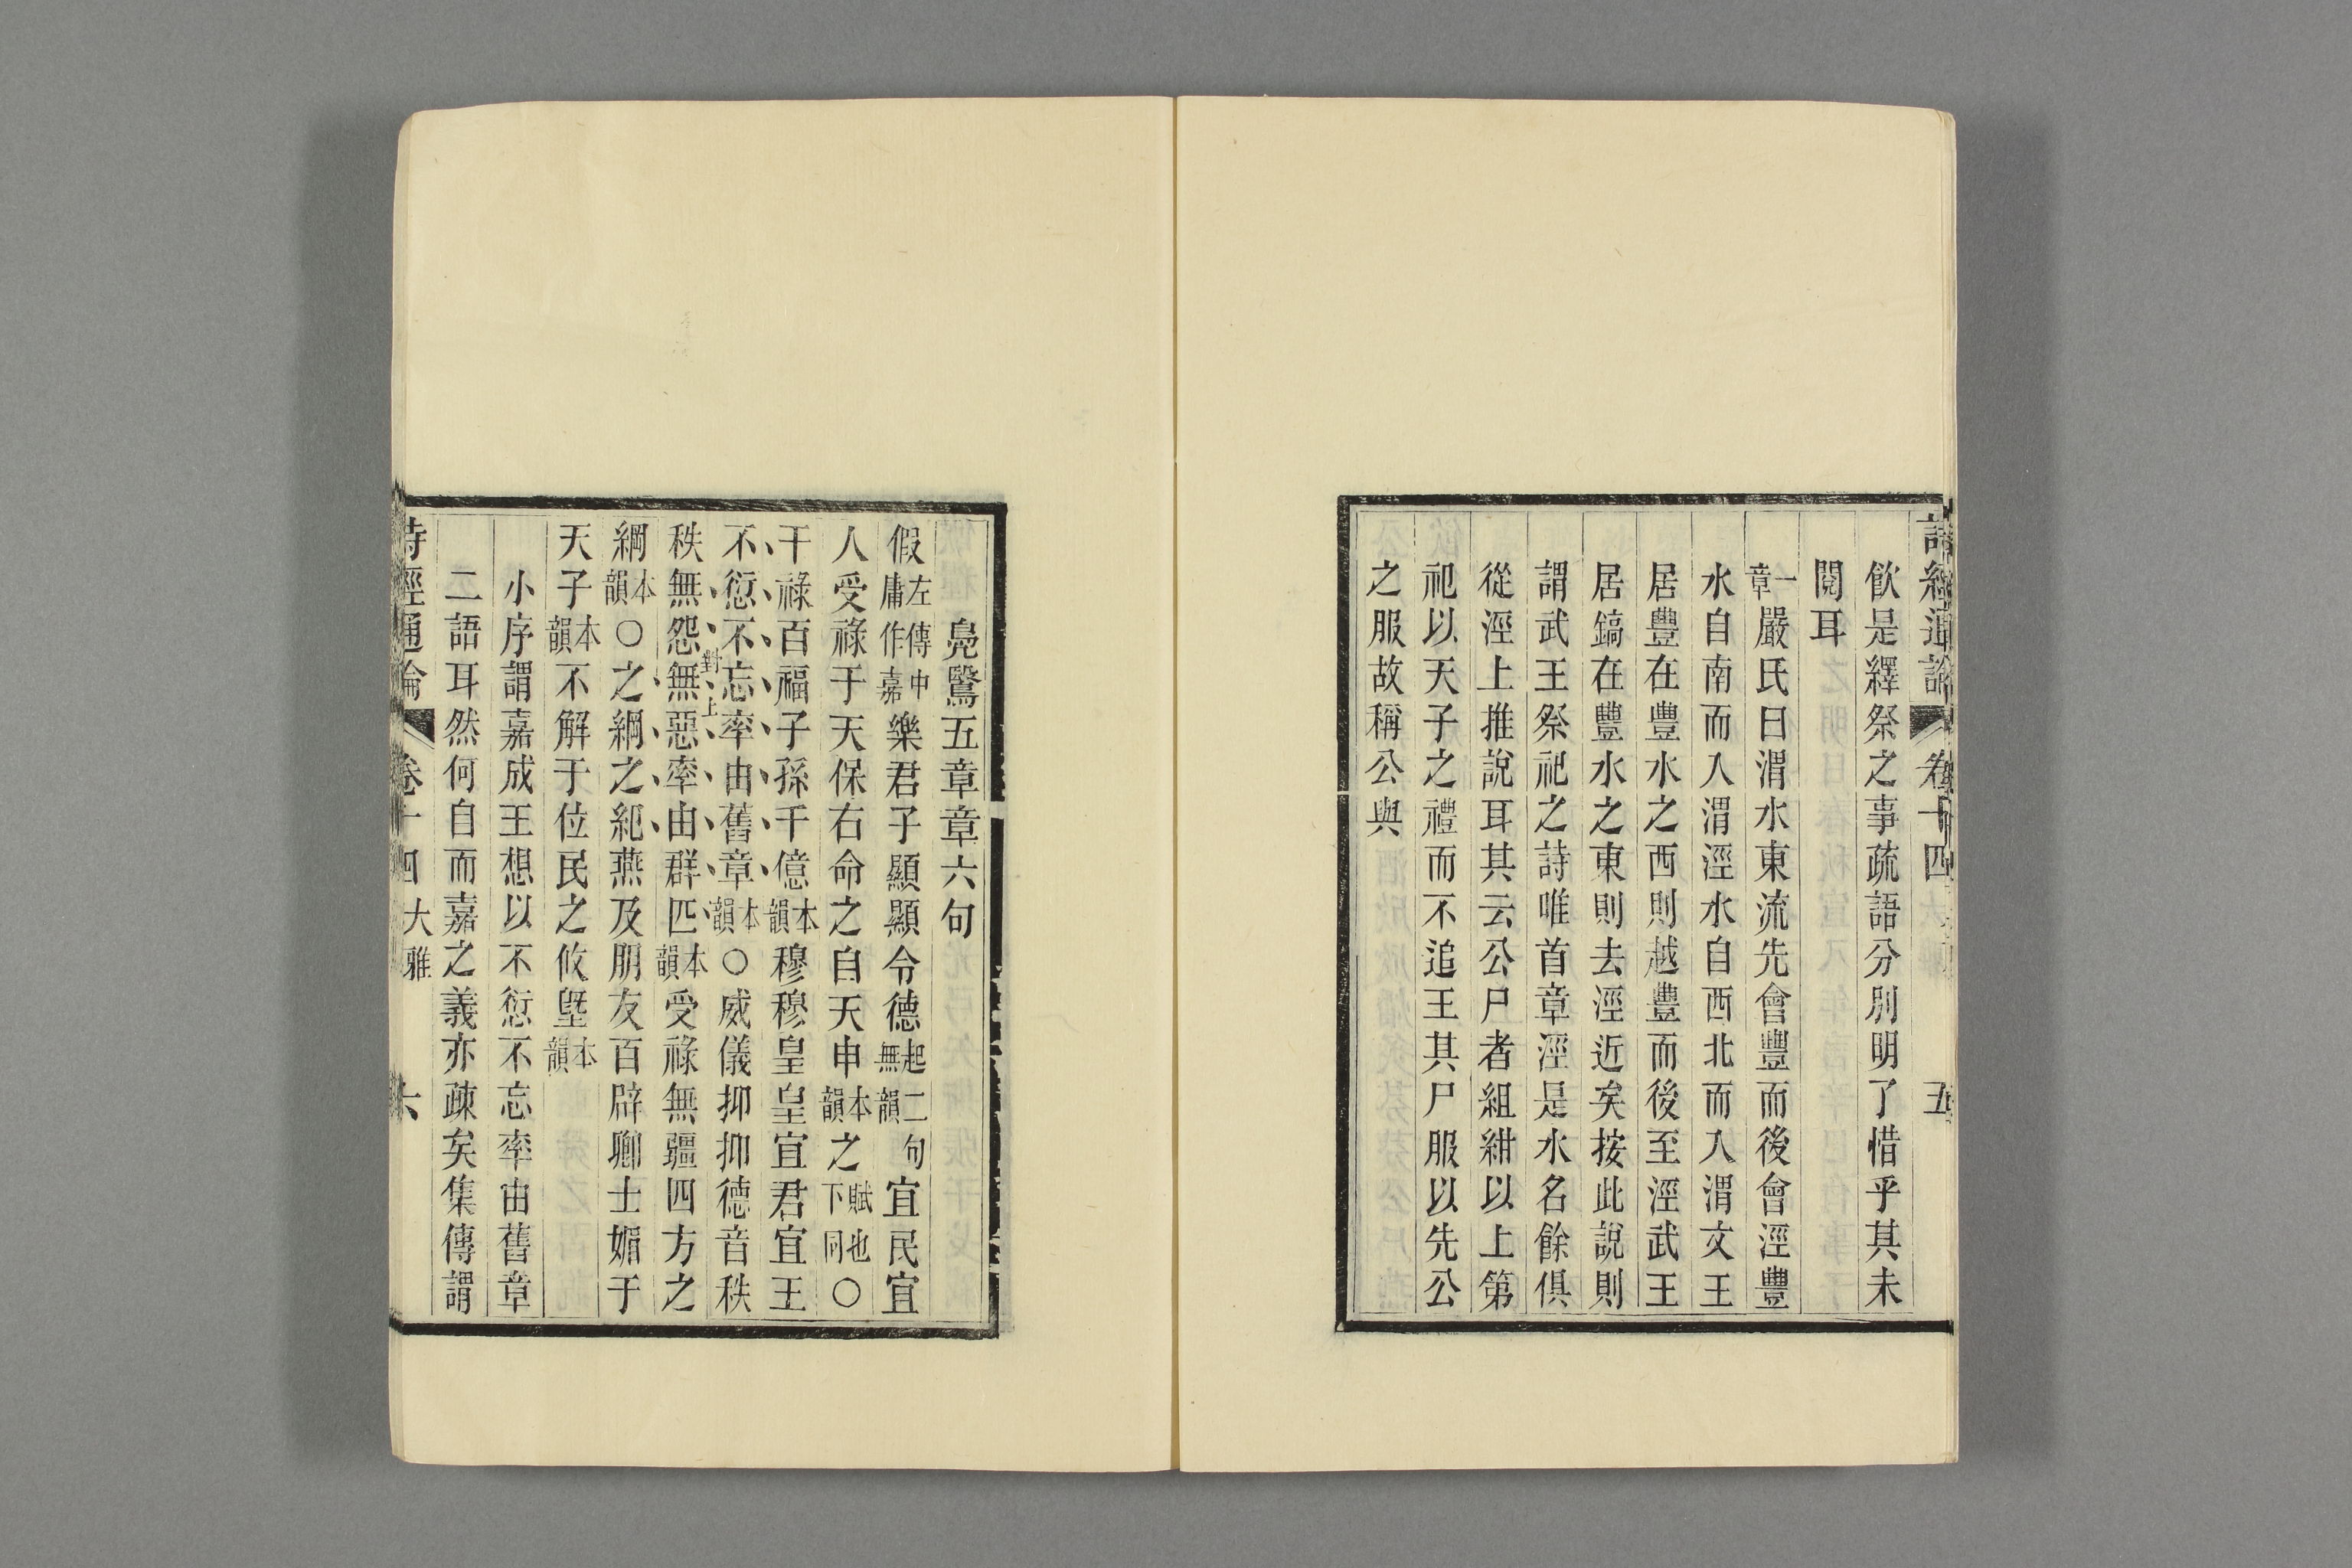 詩經通論 卷十四 五
飲是繹祭之事疏語分別明了惜乎其未
閱耳
一章嚴氏曰渭水東流先會豐而後會涇豐
水自南而入渭涇水自西北而入渭文王
居豐在豐水之西則越豐而後至涇武王
居鎬在豐水之東則去涇近矣按此說則
謂武王祭祀之詩唯首章涇是水名餘俱
從涇上推說耳其云公尸者組紺以上第
祀以天子之禮而不追王其尸服以先公
之服故稱公與
鳧鷖五章章六句
假左傳中庸作嘉樂君子顯顯令德起二句無韻宜民宜
人受祿于天保右命之自天申本韻之賦也下同○
干祿百福子孫千億本韻穆穆皇皇宜君宜王
不愆不忘率由舊章本韻○威儀抑抑德音秩
對上
秩無怨無惡率由群匹本韻受祿無疆四方之
綱本韻○之綱之紀燕及朋友百辟卿士媚于
天子本韻不解于位民之攸墍本韻
小序謂嘉成王想以不愆不忘率由舊章
二語耳然何自而嘉之義亦疎矣集傳謂
詩經通論 卷十四 大雅 六